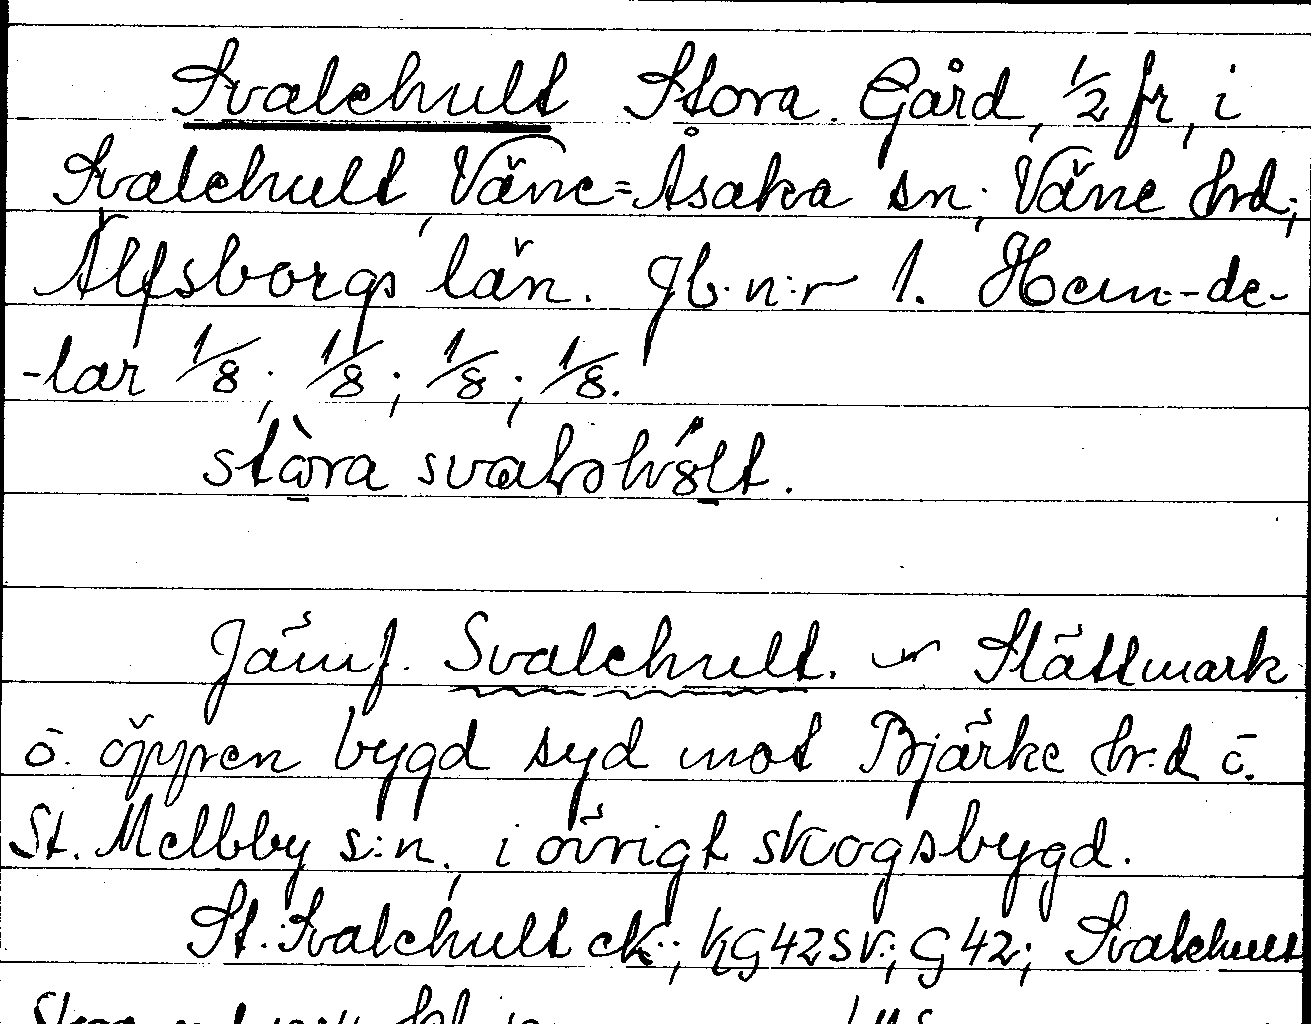 Svalehult Stora. Gård, 1/2 fr, i
Svalehult, Väne=Åsaka sn; Väne hrd;
Älfsborgs län. Jb. n:r 1. Hem:-de-
-lar 1/8; 1/8; 1/8; 1/8.
Jämf. Svalehult. Slättmark
o. öppen bygd syd mot Bjärke hr:d o.
St. Mellby s:n, i övrigt skogsbygd.
St. Svalehult ek.; KG42SV.; G42; Svalehult